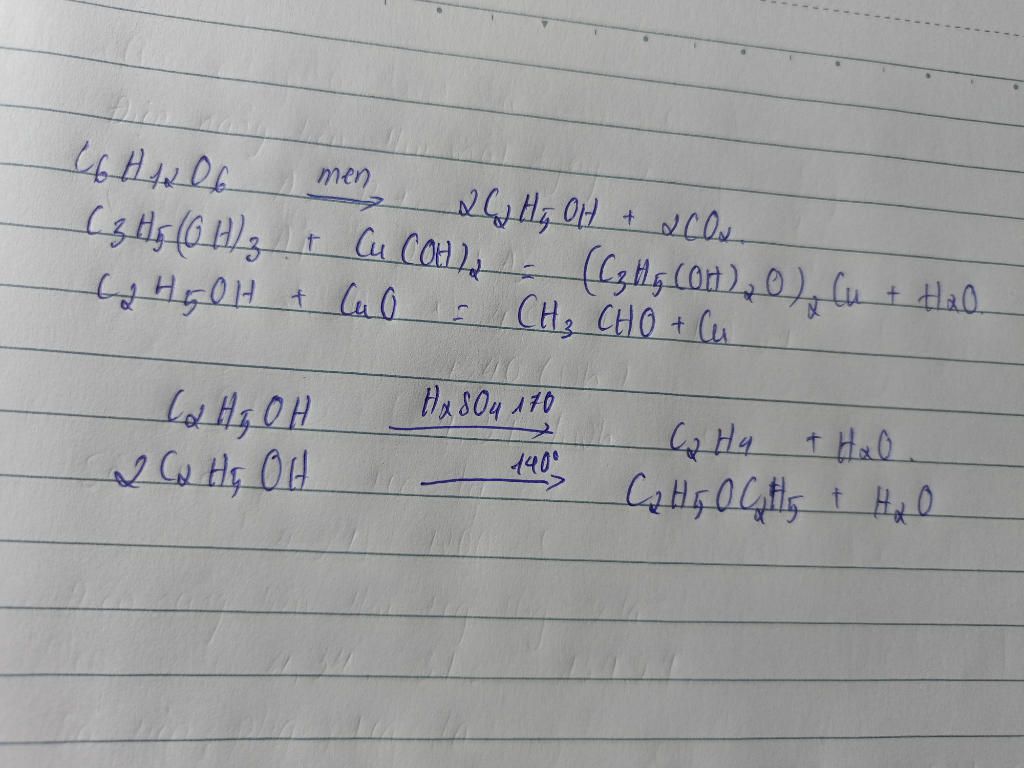 C6H12O6 men → 2C2H5OH + 2CO2.
C3H5(OH)3 + Cu(OH)2 = (C3H5(OH)2O)2Cu + H2O.
C2H5OH + CuO = CH3CHO + Cu
C2H5OH H2SO4 170 → C2H4 + H2O.
2C2H5OH 140° → C2H5OC2H5 + H2O